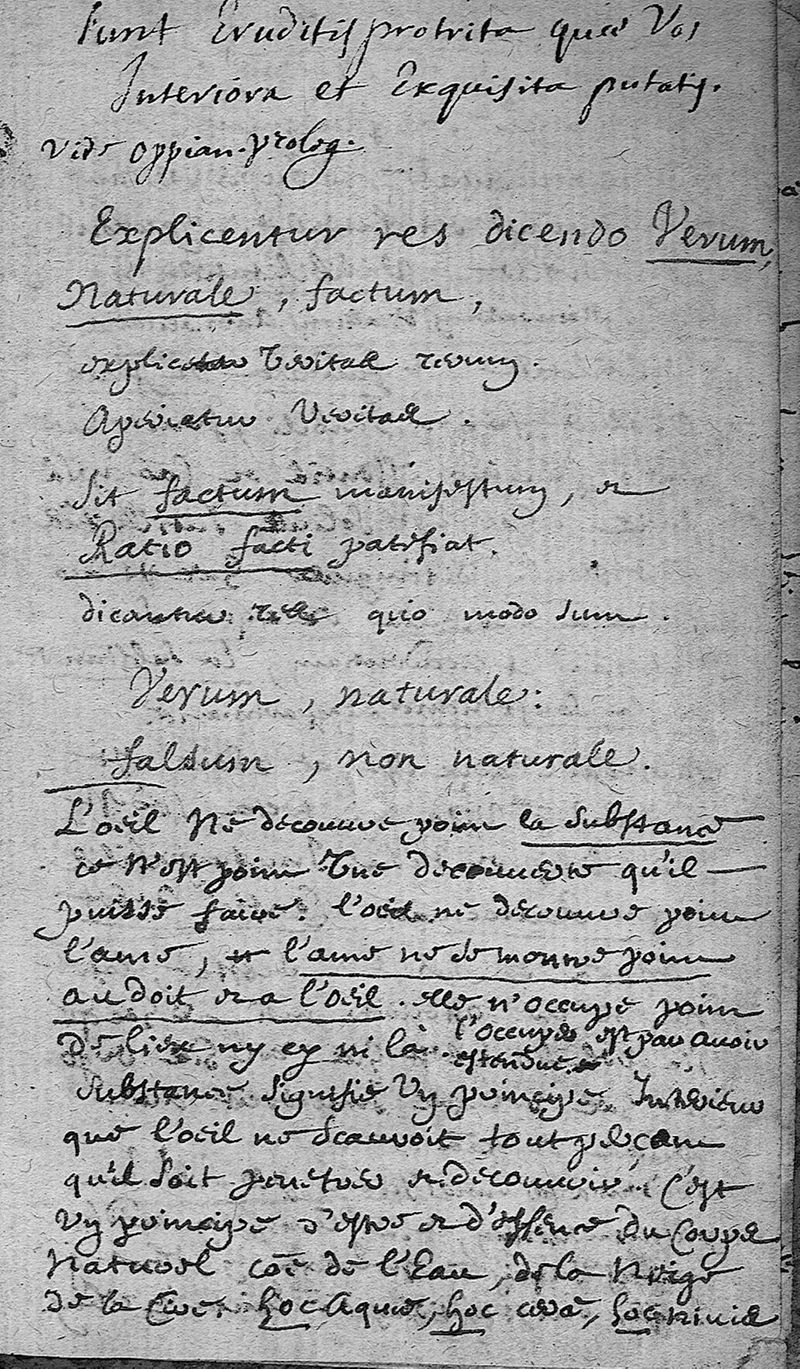 sunt Eruditis protrita quae Vos
Interiora et Exquisita putatis.
vide oppian. prolog.
Explicentur res dicendo Verum,
Naturale, factum,
explicetur Veritas rerum.
Aperiatur Veritas.
Sit factum manifestum, et
Ratio facti patefiat.
dicantur res quo modo sunt.
Verum, naturale:
falsum, non naturale.
L'oeil Ne decouvre point la substance
ce N'est point Une decouverte qu'il
puisse faire. l'oeil ne decouvre point
l'ame, et l'ame ne se montre point
au doit et a l'oeil. elle n'occupe point
de lieu ny cy ni là. l'occuper est par avoir
estendue.
Substance signifie Un principe Interieur
que l'oeil ne scauroit tout percant
qu'il soit penetrer et decouvrir, C'est
Un principe d'estre et d'essence du Corps
Naturel coe de l'Eau, de la Neige
de la Cire. hoc Aquae, hoc cerae, hoc niuis